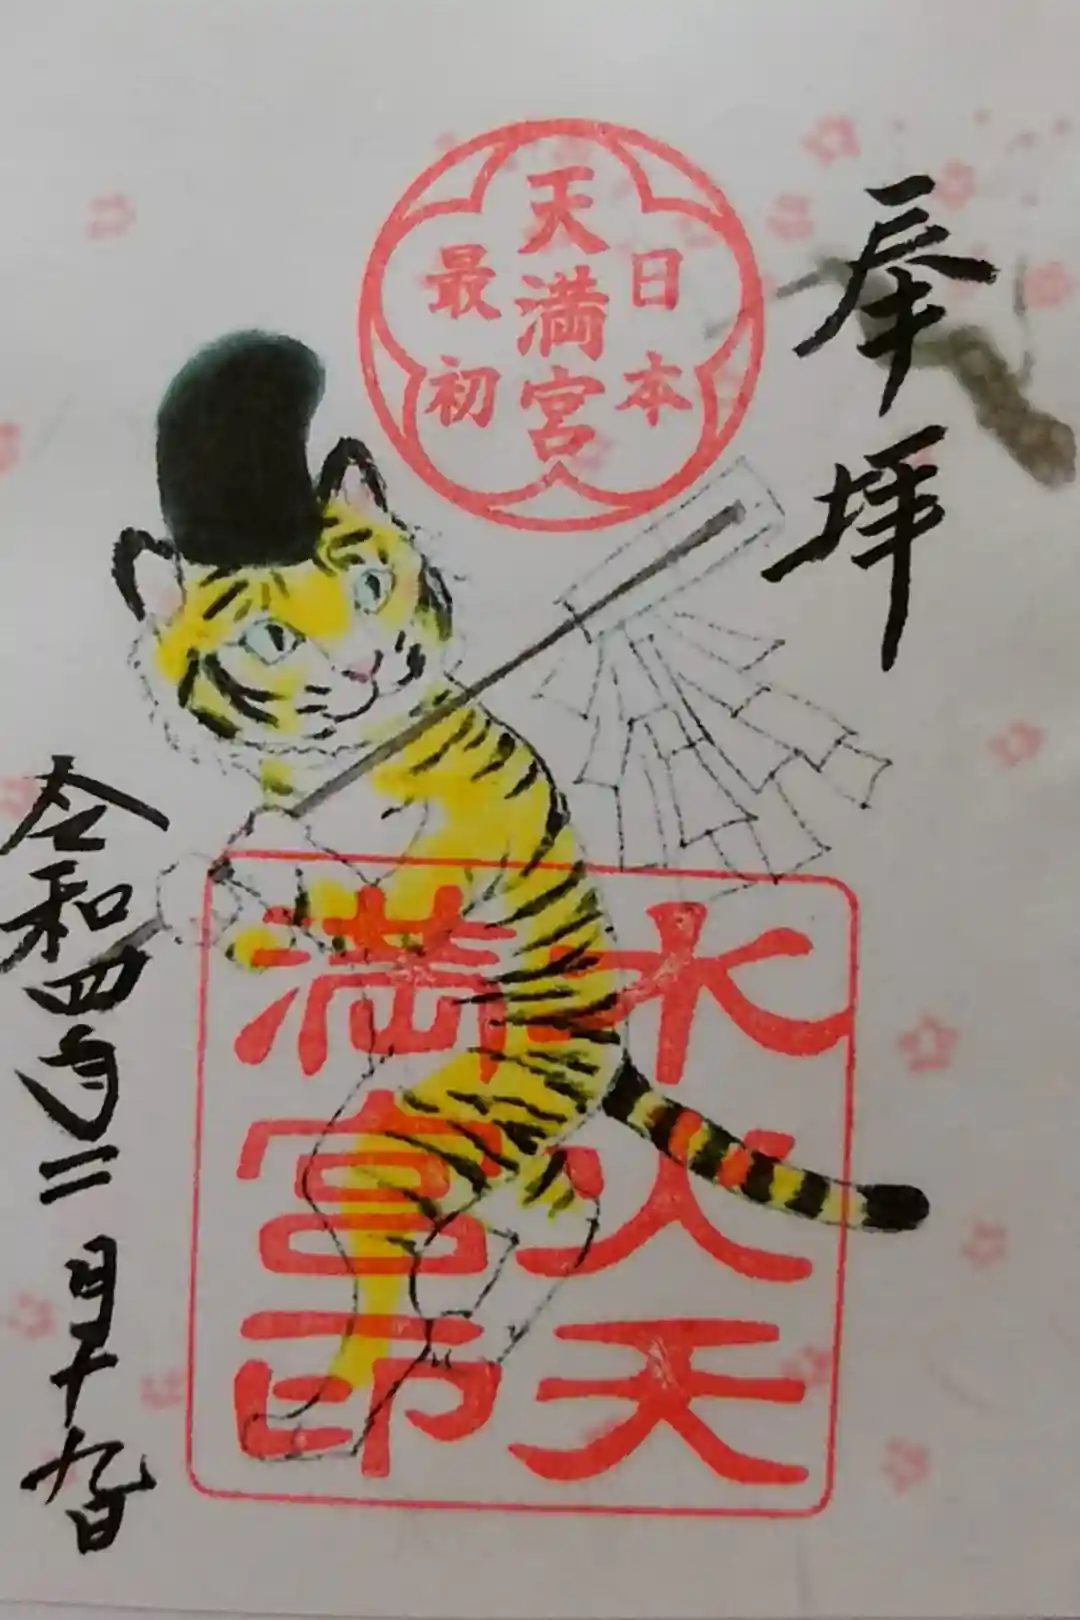 奉拝
日本
天満宮
最初
水火天
満宮印
令和四年二月十九日